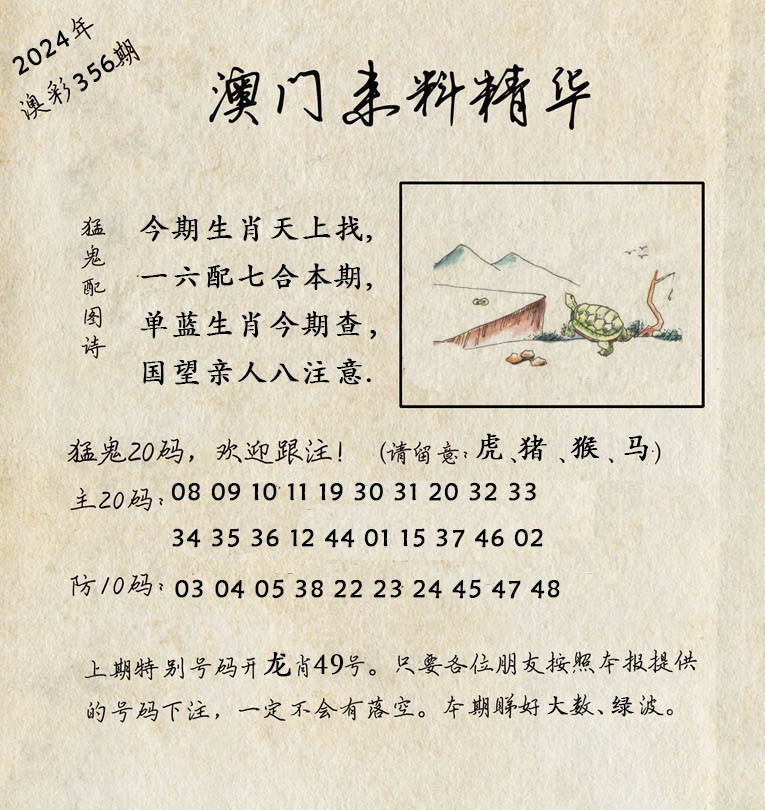 2024年
澳彩356期
澳门来料精华
猛鬼配图诗
今期生肖天上找,
一六配七合本期,
单蓝生肖今期查,
国望亲人八注意.
猛鬼20码，欢迎跟注！（请留意：虎、猪、猴、马）
主20码：08 09 10 11 19 30 31 20 32 33
34 35 36 12 44 01 15 37 46 02
防10码：03 04 05 38 22 23 24 45 47 48
上期特别号码开龙肖49号。只要各位朋友按照本报提供
的号码下注，一定不会有落空。本期睇好大数、绿波。